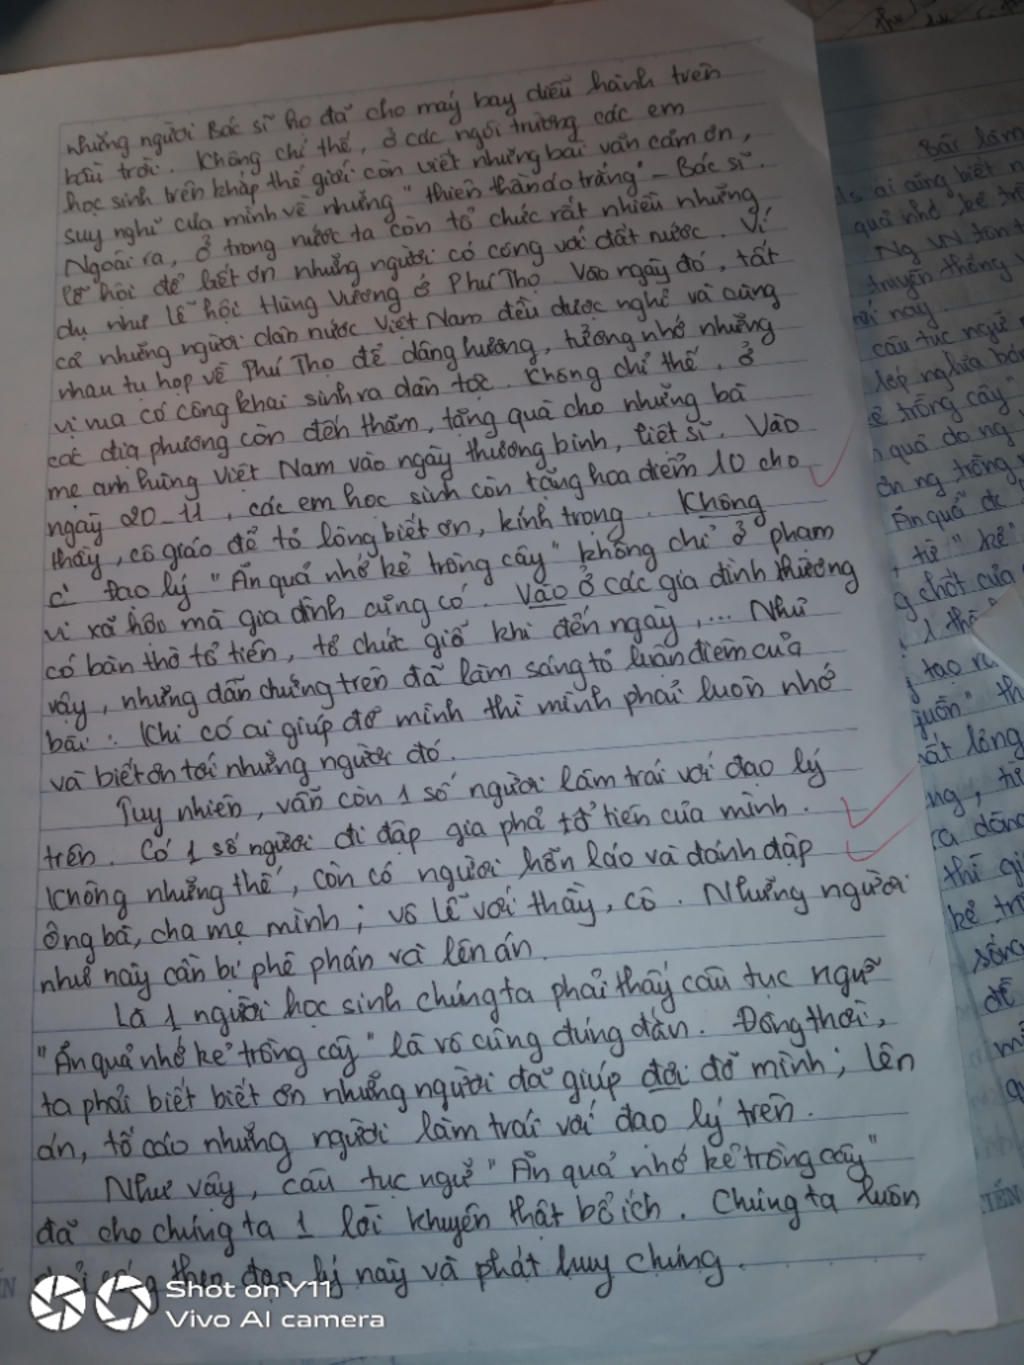 những người Bác sĩ họ đã cho máy bay diễu hành trên
bầu trời. Không chỉ thế, ở các ngôi trường các em
học sinh trên khắp thế giới còn viết những bài văn cảm ơn,
suy nghĩ của mình về những "thiên thần áo trắng" - Bác sĩ.
Ngoài ra, ở trong nước ta còn tổ chức rất nhiều những
lễ hội để biết ơn những người có công với đất nước. Ví
dụ như lễ hội Hùng Vương ở Phú Thọ. Vào ngày đó, tất
cả những người dân nước Việt Nam đều được nghỉ và cùng
nhau tụ họp về Phú Thọ để dâng hương, tưởng nhớ những
vị mà có công khai sinh ra dân tộc. Không chỉ thế, ở
các địa phương còn đến thăm, tặng quà cho những bà
mẹ anh hùng Việt Nam vào ngày thương binh, liệt sĩ. Vào
ngày 20-11, các em học sinh còn tặng hoa điểm 10 cho
thầy, cô giáo để tỏ lòng biết ơn, kính trọng. Không
Đạo lý "Ăn quả nhớ kẻ trồng cây" không chỉ ở phạm
vi xã hội mà gia đình cũng có. Vào ở các gia đình thường
có bàn thờ tổ tiên, tổ chức giỗ khi đến ngày,... Như
vậy, những dẫn chứng trên đã làm sáng tỏ luận điểm của
bài: Khi có ai giúp đỡ mình thì mình phải luôn nhớ
và biết ơn tới những người đó.
Tuy nhiên, vẫn còn 1 số người làm trái với đạo lý
trên. Có 1 số người đi đập gia phả tổ tiên của mình.
Không những thế, còn có người hỗn láo và đánh đập
ông bà, cha mẹ mình; vô lễ với thầy, cô. Những người
như này cần bị phê phán và lên án.
Là 1 người học sinh chúng ta phải thấy câu tục ngữ
"Ăn quả nhớ kẻ trồng cây" là vô cùng đúng đắn. Đồng thời,
ta phải biết biết ơn những người đã giúp đời đỡ mình; lên
án, tố cáo những người làm trái với đạo lý trên.
Như vậy, câu tục ngữ "Ăn quả nhớ kẻ trồng cây"
đã cho chúng ta 1 lời khuyên thật bổ ích. Chúng ta luôn
theo đạo lý này và phát huy chúng.
Shot on Y11
Vivo AI camera